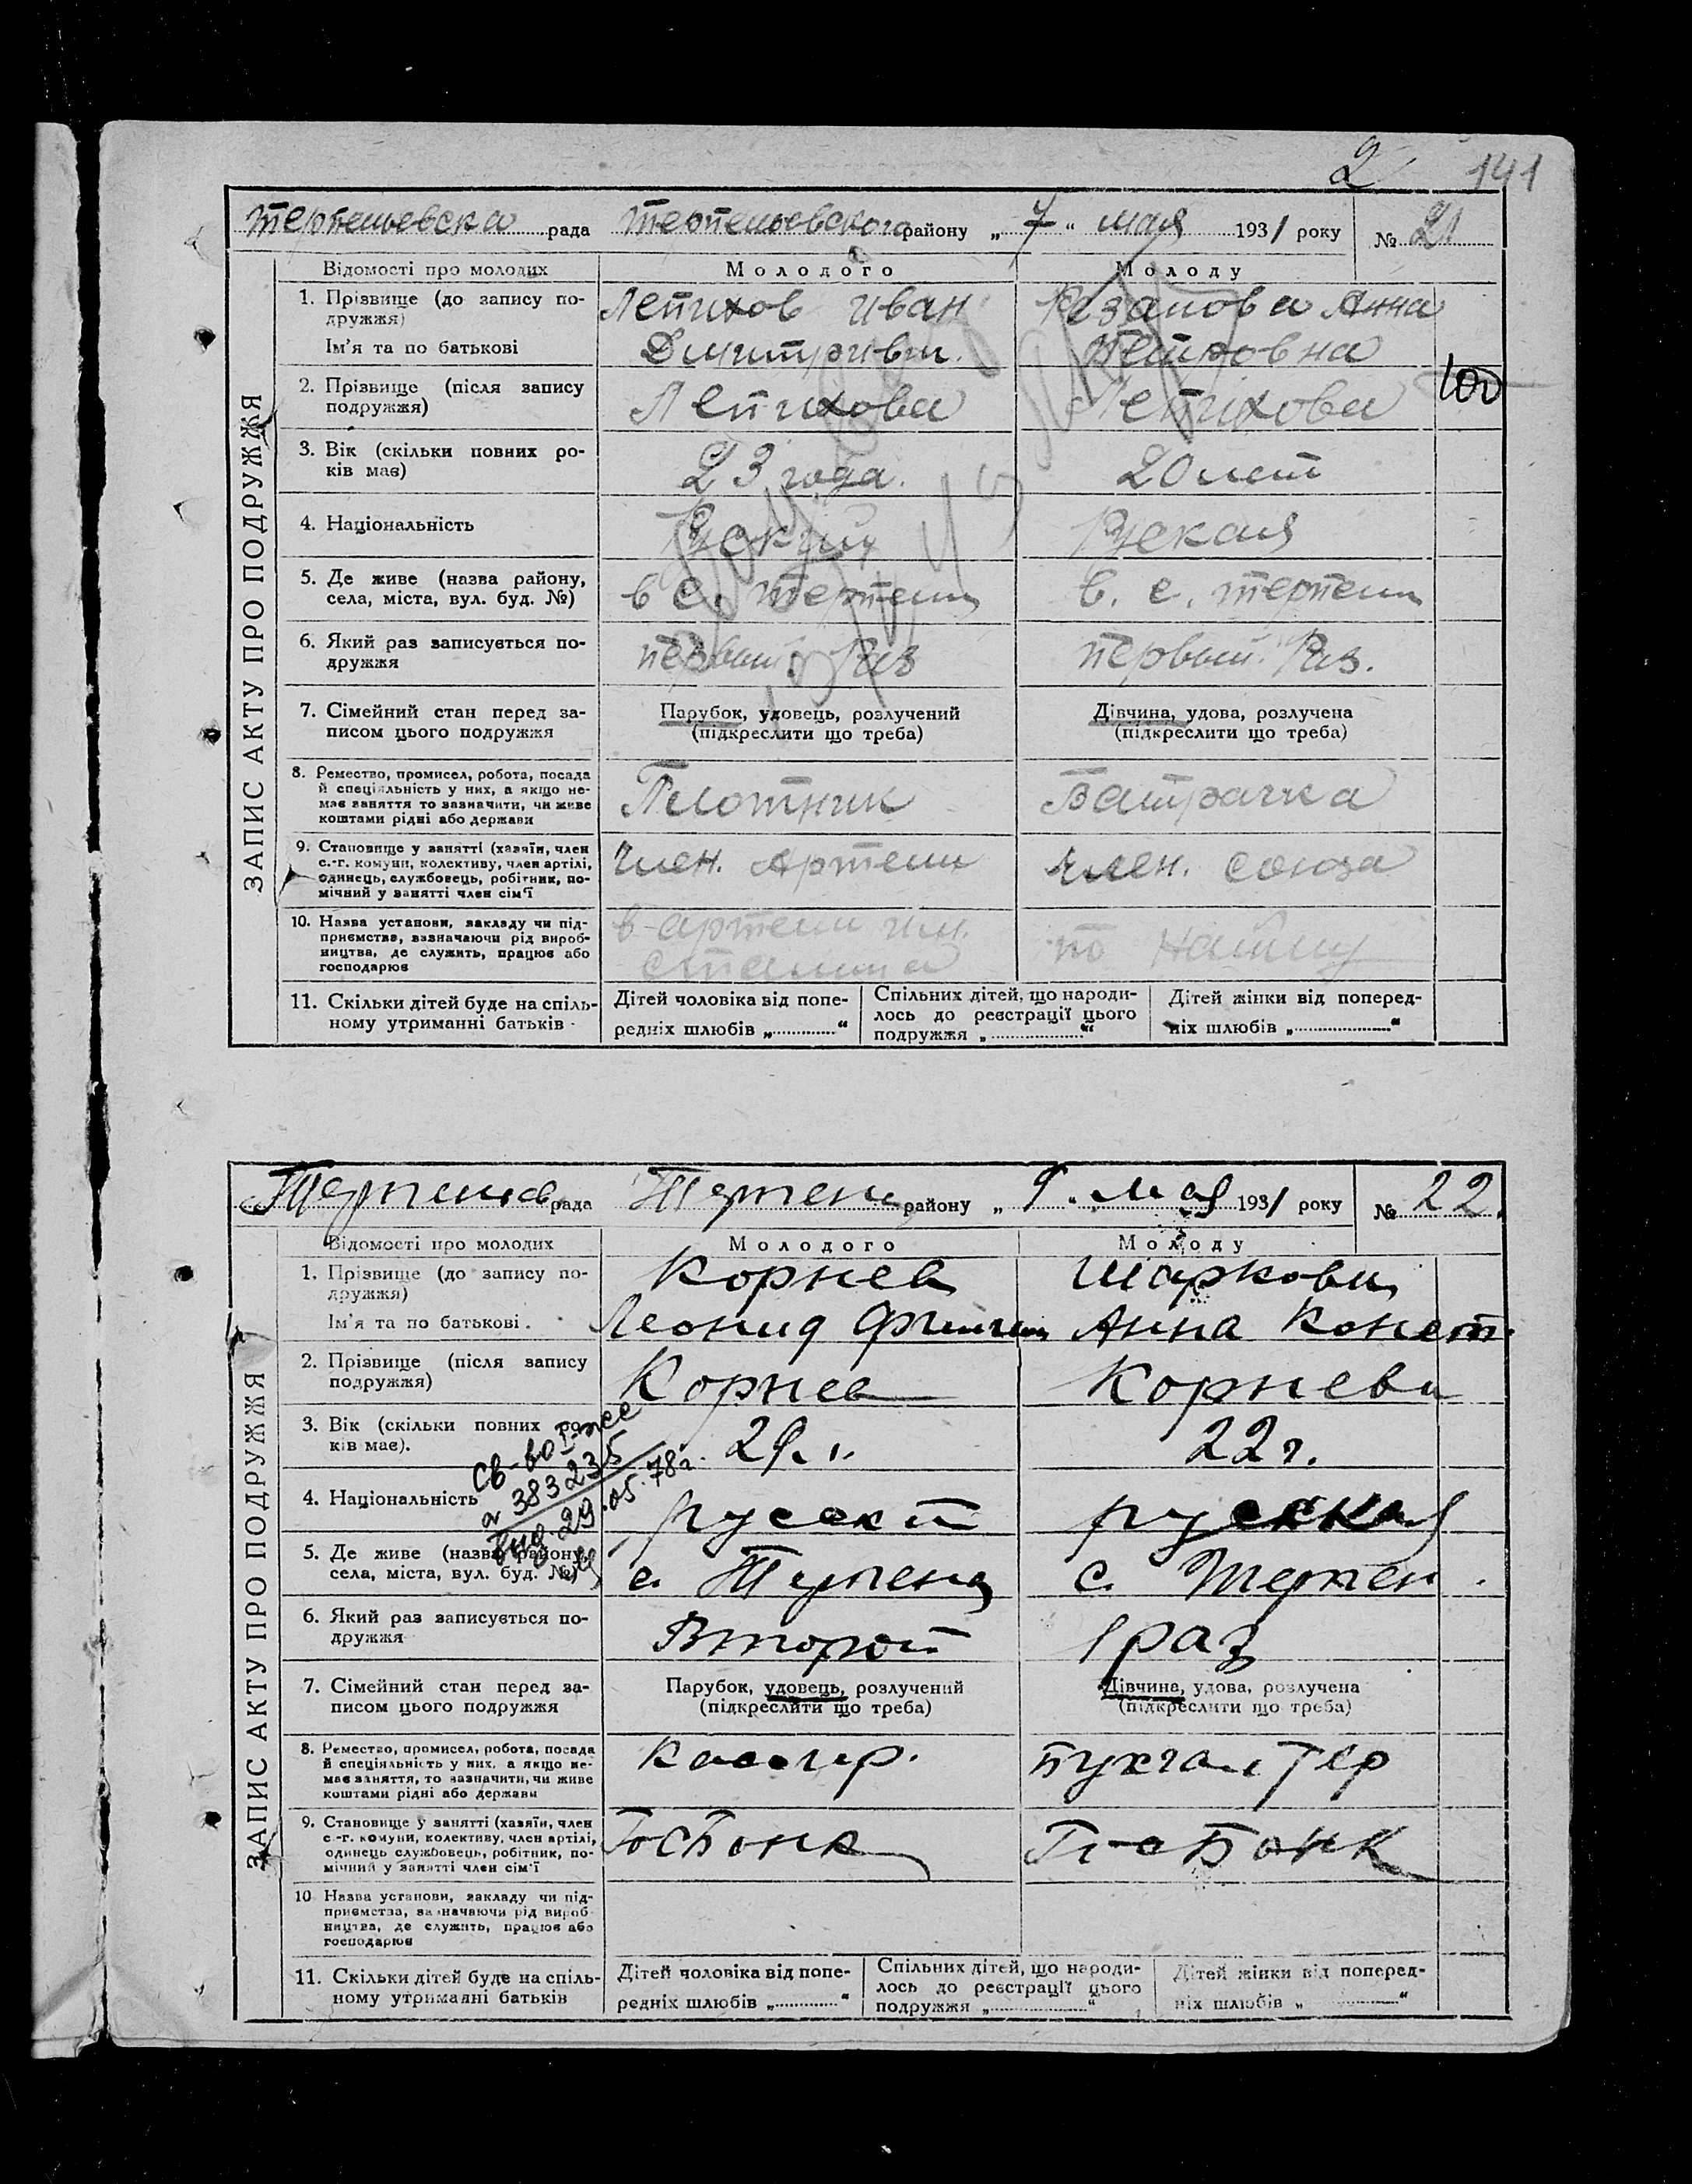 2 141
Терпеньевска рада Терпеньевского району „ 7 “ мая 1931 року № 21
ЗАПИС АКТУ ПРО ПОДРУЖЖЯ
Відомості про молодих Молодого Молоду
1. Прізвище (до запису по- Лепихов Иван Резанова Анна
дружжя)
Ім’я та по батькові Дмитривич. Петровна
2. Прізвище (після запису Лепихова Лепіхова
подружжя)
3. Вік (скільки повних ро- 23 года. 20 лет
ків має)
4. Національність Руский Руская
5. Де живе (назва району, в с. терпении в. с. терпении
села, міста, вул. буд. №)
6. Який раз записується по- первый Раз первый Раз.
дружжя
7. Сімейний стан перед за- Парубок, удовець, розлучений Дівчина, удова, розлучена
писом цього подружжя (підкреслити що треба) (підкреслити що треба)
8. Ремество, промисел, робота, посада
й спеціяльність у них, а якщо не- Плотник Батрачка
має заняття то зазначити, чи живе
коштами рідні або держави
9. Становище у занятті (хазяїн, член член. Артели член. союза
с.-г. комуни, колективу, член артілі,
одинець, службовець, робітник, по-
мічний у занятті член сім’ї
10. Назва установи, закладу чи під- в артели им. по найму
приємства, зазначаючи рід вироб- сталина
ництва, де служить, працює або
господарює
11. Скільки дітей буде на спіль- Дітей чоловіка від попе- Спільних дітей, що народи- Дітей жінки від поперед-
ному утриманні батьків редніх шлюбів „ “ лось до реєстрації цього ніх шлюбів „ “
подружжя „ “
рада Терпен району „ 9 . мая 1931 року № 22.
ЗАПИС АКТУ ПРО ПОДРУЖЖЯ
Відомості про молодих Молодого Молоду
1. Прізвище (до запису по- Корнев Шаркова
дружжя)
Ім’я та по батькові. Леонид Анна Конст
2. Прізвище (після запису Корнев Корнева
подружжя)
3. Вік (скільки повних ро- 29 г. 22 г.
ків має).
Св-во
383235
29.05.78г.
4. Національність русский русская
5. Де живе (назва району, с. Терпен с. Терпен
села, міста, вул. буд. №)
6. Який раз записується по- Второй 1 раз
дружжя
7. Сімейний стан перед за- Парубок, удовець, розлучений Дівчина, удова, розлучена
писом цього подружжя (підкреслити що треба) (підкреслити що треба)
8. Ремество, промисел, робота, посада Кассир. Бухгалтер
й спеціяльність у них, а якщо не-
має заняття, то зазначити, чи живе
коштами рідні або держави
9. Становище у занятті (хазяїн, член ГосБанк ГосБанк
с.-г. комуни, колективу, член артілі,
одинець службовець, робітник, по-
мічний у занятті член сім’ї
10 Назва установи, закладу чи під-
приємства, зазначаючи рід вироб-
ництва, де служить, працює або
господарює
11. Скільки дітей буде на спіль- Дітей чоловіка від попе- Спільних дітей, що народи- Дітей жінки від поперед-
ному утриманні батьків редніх шлюбів „ “ лось до реєстрації цього ніх шлюбів „ “
подружжя „ “